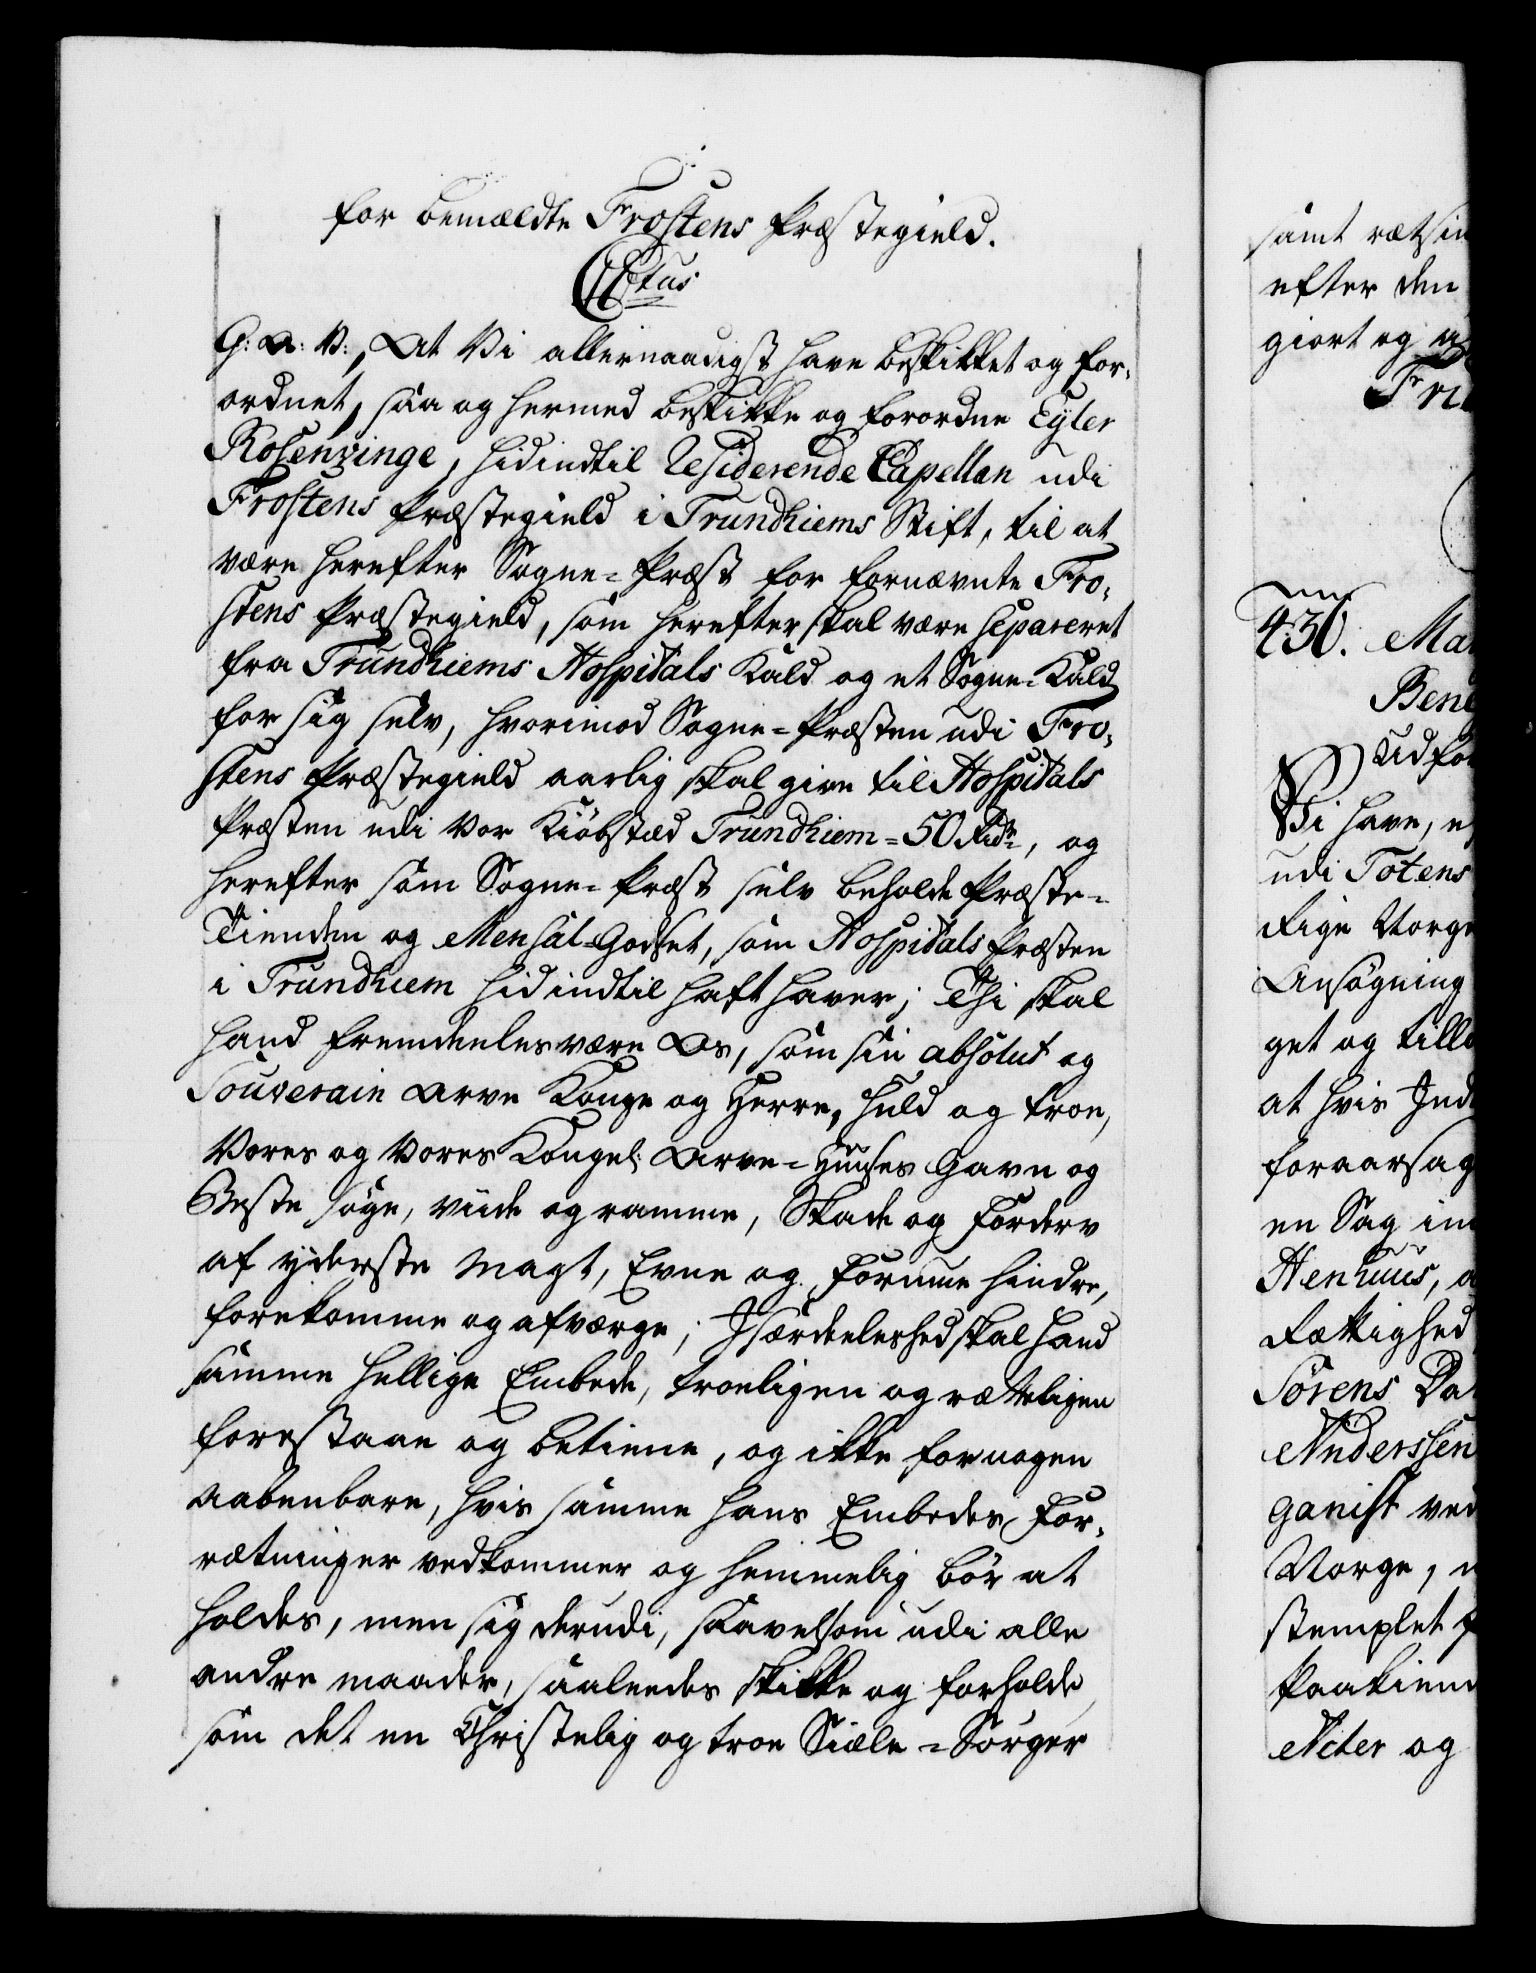 for bemældte Frostens Præstegield.
Ctus
G: A: V:, At Vi allernaadigst have beskikket og for-
ordnet, saa og hermed beskikke og forordne Eyler
Rosenvinge, hidindtil Residerende Capellan udi
Frostens Præstegield i Trundhiems Stift, til at
være herefter Sogne-Præst for fornævnte Fro-
stens Præstegield, som herefter skal være separeret
fra Trundhiems Hospitals Kald og et Sogne-Kald
for sig selv, hvorimod Sogne-Præsten udi Fro-
stens Præstegield aarlig skal give til Hospitals
Præsten udi Vor Kiöbstæd Trundhiem = 50 Rdr, og
herefter som Sogne-Præst selv beholde Præste-
Tienden og Mensal-Godset, som Hospitals Præsten
i Trundhiem hidindtil haft haver; Thi skal
hand fremdeeles være Os, som sin absolut og
Souverain Arve Konge og Herre, huld og troe,
Vores og Vores Kongel: Arve-Huuses Gavn og
Beste söge, viide og ramme, Skade og Forderv
af yderste Magt, Evne og Formue hindre,
forekomme og afværge; Isærdeeleshed skal hand
samme hellige Embede, troeligen og rætteligen
forestaae og betiene, og ikke for nogen
aabenbare, hvis samme hans Embedes For-
rætninger vedkommer og hemmelig bör at
holdes, men sig derudi, saavelsom udi alle
andre maader, saaleedes skikke og forholde
som det en Christelig og troe Siæle-Sörger
samt rætsin
efter den
giort og
Fri
430. Ma
Bene
Ud for
Vi have,
udi Totens
Rige Norge
Ansögning
get og till
at hvis Ind
foraarsag
en Sag in
Henhuus,
Rettighed
Sörens Da
Anderssen
ganist ved
Norge,
stemplet
Paakiend
Acter og